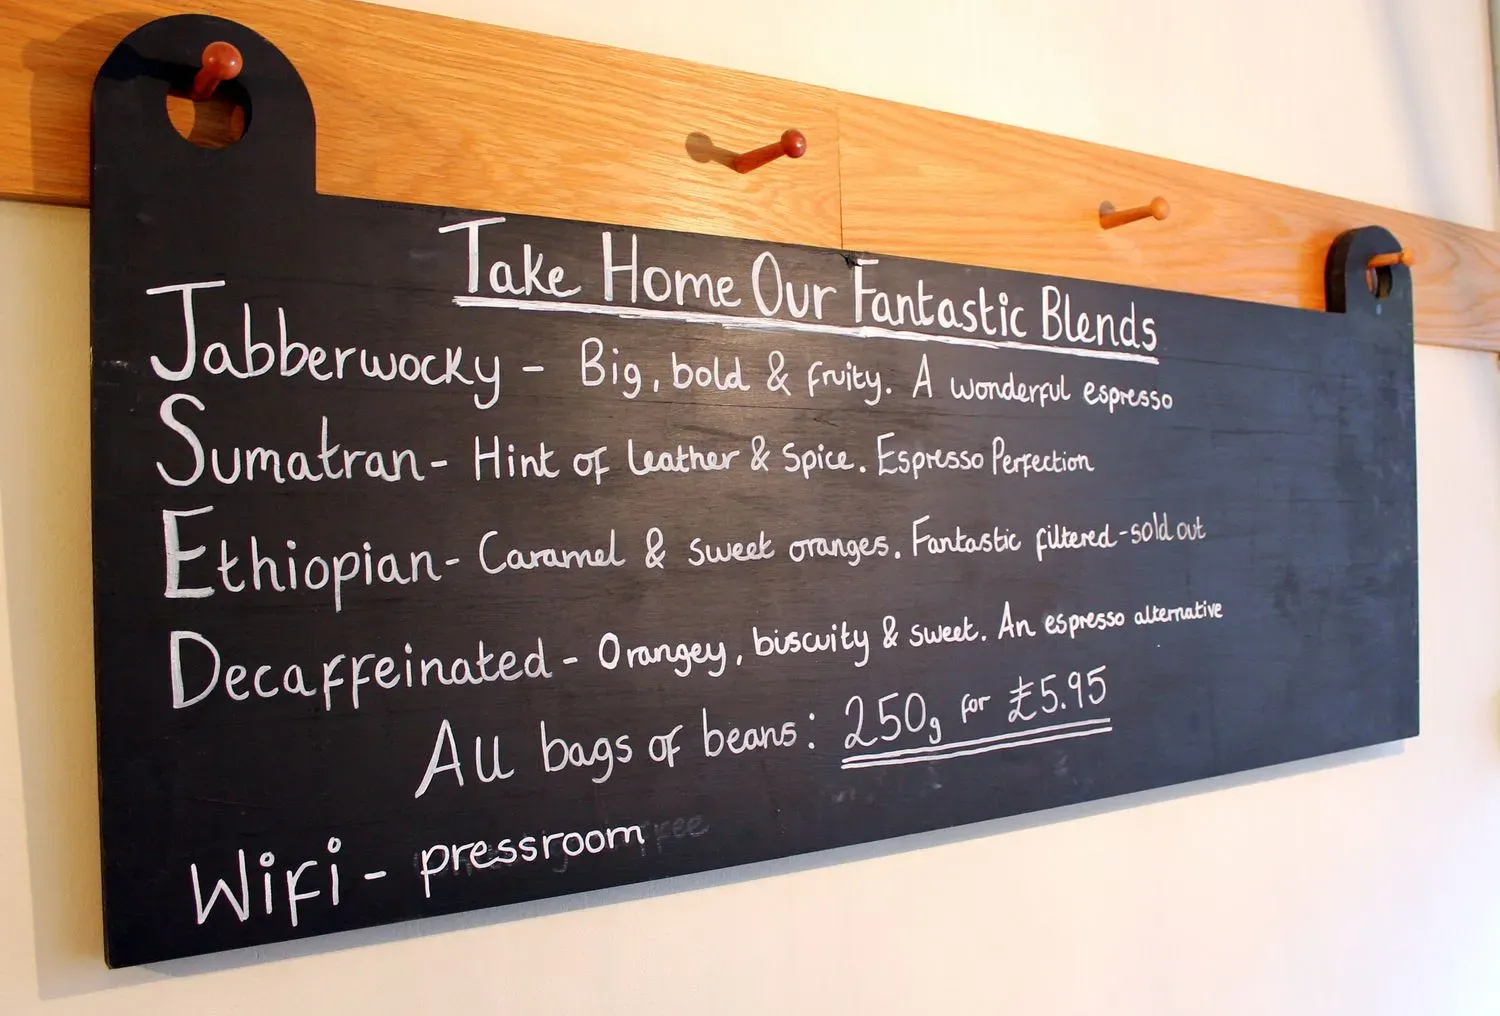 Take Home Our Fantastic Blends
Jabberwocky - Big, bold & fruity. A wonderful espresso
Sumatran - Hint of leather & Spice. Espresso Perfection
Ethiopian - Caramel & sweet oranges. Fantastic filtered - sold out
Decaffeinated - Orangey, biscuity & sweet. An espresso alternative
All bags of beans: 250g for £5.95
Wifi - pressroom